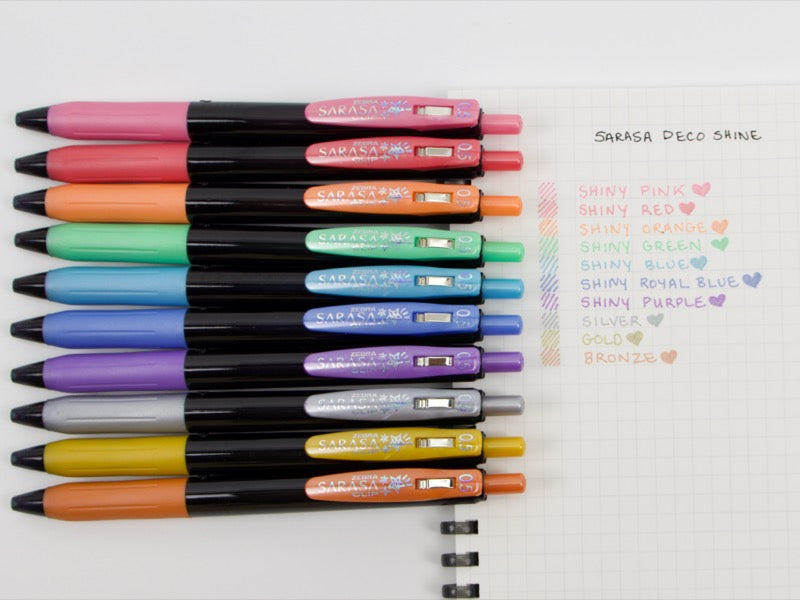 SARASA DECO SHINE
SHINY PINK
SHINY RED
SHINY ORANGE
SHINY GREEN
SHINY BLUE
SHINY ROYAL BLUE
SHINY PURPLE
SILVER
GOLD
BRONZE
ZEBRA
SARASA
CLIP
0.5
SARASA
CLIP
0.5
ZEBRA
SARASA
CLIP
0.5
ZEBRA
SARASA
CLIP
0.5
ZEBRA
SARASA
CLIP
0.5
ZEBRA
SARASA
CLIP
0.5
ZEBRA
SARASA
CLIP
0.5
ZEBRA
SARASA
CLIP
ZEBRA
SARASA
CLIP
0.5
ZEBRA
SARASA
CLIP
0.5